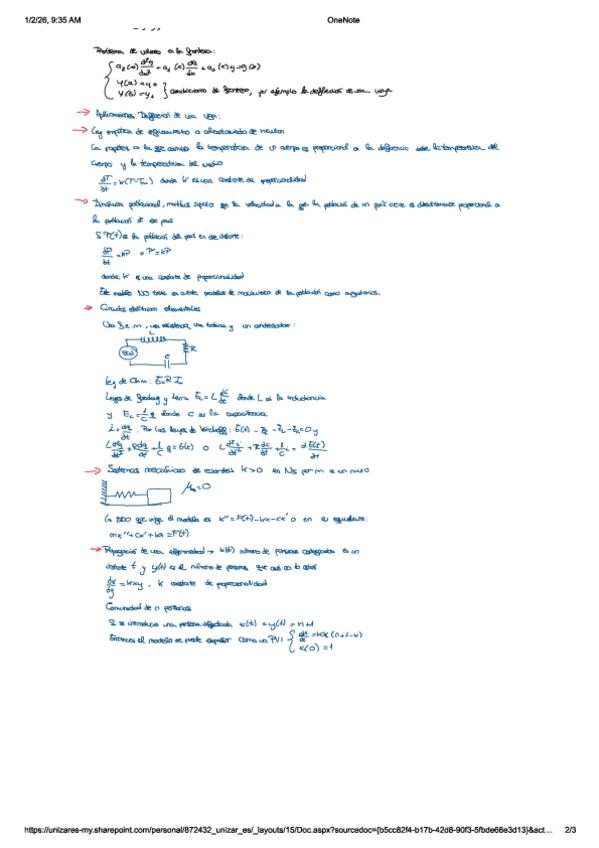 1/2/26, 9:35 AM OneNote
Problema de valores en la frontera:
a₂(x) d²y/dx² + a₁(x) dy/dx + a₀(x)y = g(x)
y(a) = y₀
y(b) = y₁ } condiciones de frontera, por ejemplo la deflexión de una viga
→ Aplicaciones. Deflexión de una viga:
→ Ley empírica de enfriamiento o calentamiento de Newton
La rapidez a la que cambia la temperatura de un cuerpo es proporcional a la diferencia entre la temperatura del
cuerpo y la temperatura del medio
dT/dt = k(T-Tm) donde k es una constante de proporcionalidad
→ Dinámica poblacional, Malthus supuso que la velocidad a la que la población de un país crece es directamente proporcional a
la población de ese país
Si P(t) es la población del país en ese instante:
dP/dt = kP = P' = kP
donde k es una constante de proporcionalidad
Este modelo NO tiene en cuenta modelos de movimiento de la población como migratorios.
→ Circuitos eléctricos elementales
Una f.e.m, una resistencia, una bobina y un condensador:
L
E(t) R
C
Ley de Ohm: E = R I
Leyes de Faraday y Lenz E_L = L di/dt donde L es la inductancia
y E_C = 1/C q donde C es la capacitancia
i = dq/dt. Por las leyes de Kirchhoff: E(t) - 
L d²q/dt² + R dq/dt + 1/C q = E(t) o L d²i/dt² + R di/dt + 1/C i = dE(t)/dt
→ Sistemas mecánicos de resortes k>0 en N/s por m a un muro
μ = 0
La EDO que rige el modelo es x'' = F(t) - kx - cx' o en su equivalente:
mx'' + cx' + kx = F(t)
→ Propagación de una enfermedad → x(t) número de personas contagiadas en un
instante t y y(t) es el número de personas que aún no lo están
dx/dy = kxy, k constante de proporcionalidad
Comunidad de n personas
Si se introduce una persona infectada x(t) + y(t) = n+1
Entonces el modelo se puede expresar como un PVI { dx/dt = kx(n+1-x)
x(0) = 1
https://unizares-my.sharepoint.com/personal/872432_unizar_es/_layouts/15/Doc.aspx?sourcedoc={b5cc82f4-b17b-42d8-90f3-5fbde66e3d13}&act… 2/3